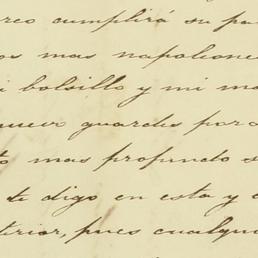 reo cumplirá su pa
os mas napoleone
i bolsillo y mi ma
nuevo guardes para
to mas profundo s
te digo en esta y
terior, pues cualqu